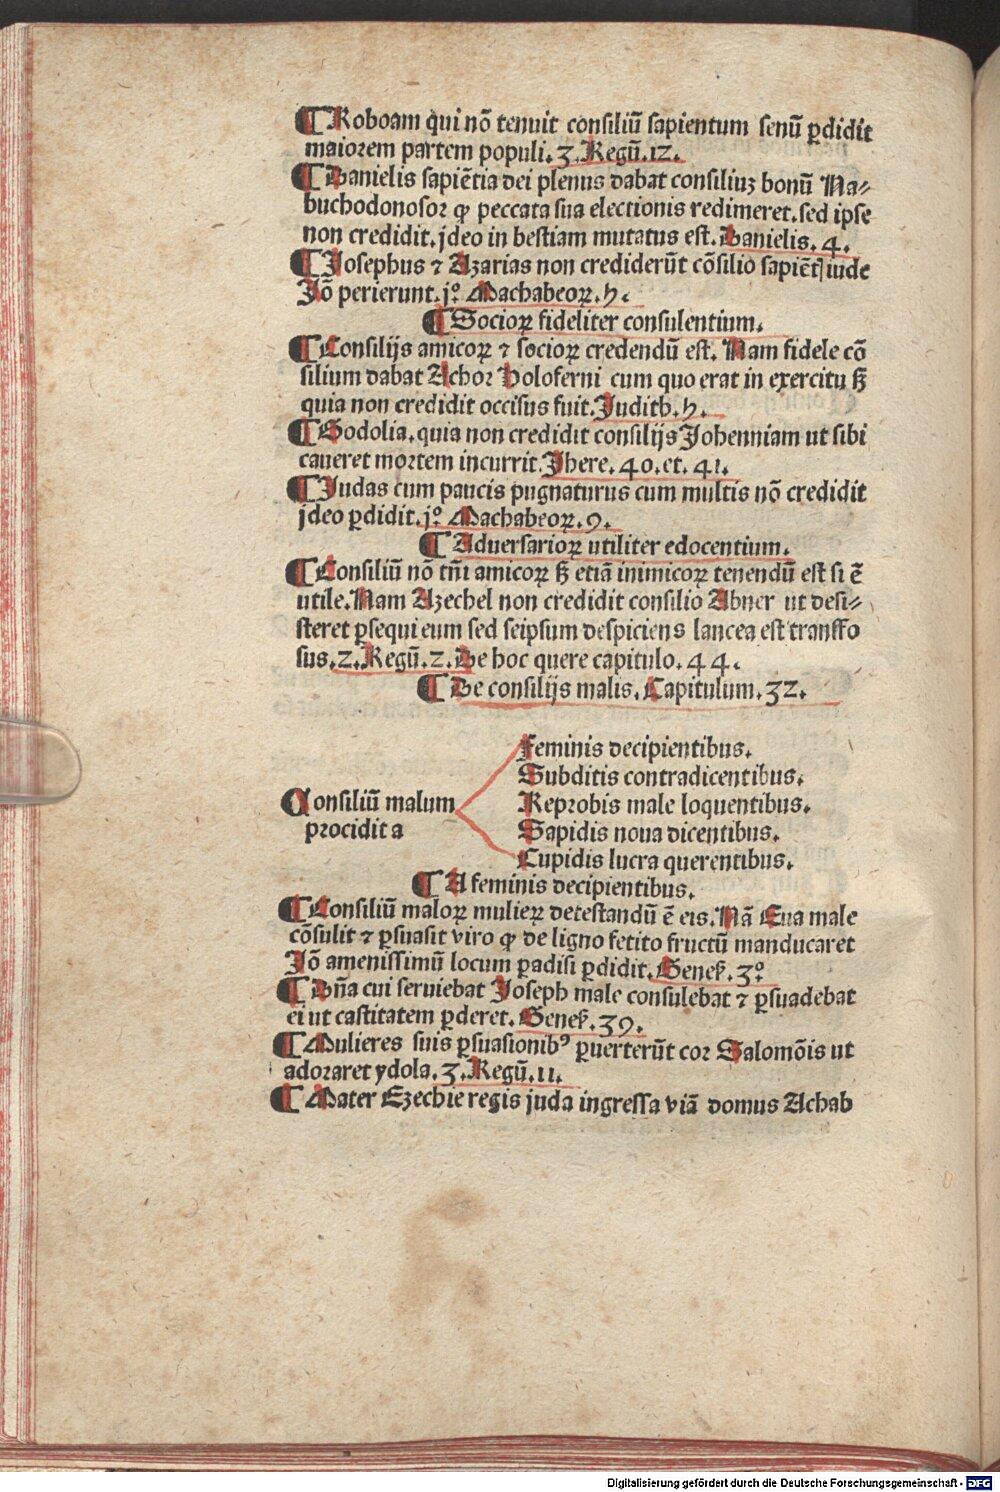 ¶ Roboam qui nō tenuit consiliū sapientum senū ꝑdidit
maiorem partem populi. 3. Regū. 12.
¶ Danielis sapiētia dei plenus dabat consiliuz bonū Na⸗
buchodonosor ꝙ peccata sua electionis redimeret. sed ipse
non credidit. jdeo in bestiam mutatus est. Danielis. 4.
¶ Josephus ⁊ Azarias non crediderūt cōsilio sapiēt| iude
Jō perierunt. j°. Machabeoꝝ. 5.
¶ Socioꝝ fideliter consulentium.
¶ Consilijs amicoꝝ ⁊ socioꝝ credendū est. Nam fidele cō
silium dabat Achor Holoferni cum quo erat in exercitu sꝫ
quia non credidit occisus fuit. Judith. 5.
¶ Godolia. quia non credidit consilijs Johenniam ut sibi
caueret mortem incurrit. Jhere. 40. et. 41.
¶ Judas cum paucis pugnaturus cum multis nō credidit
jdeo ꝑdidit. j°. Machabeoꝝ. 9.
¶ Aduersarioꝝ utiliter edocentium.
¶ Consiliū nō tm̄ amicoꝝ sꝫ etiā inimicoꝝ tenendū est si ē
utile. Nam Azechel non credidit consilio Abner ut desi⸗
steret ꝑsequi eum sed seipsum despiciens lancea est transfo
sus. 2. Regū. 2. De hoc quere capitulo. 44.
¶ De consilijs malis. Capitulum. 32.
Consiliū malum
procidit a
Feminis decipientibus.
Subditis contradicentibus.
Reprobis male loquentibus.
Sapidis noua dicentibus.
Cupidis lucra querentibus.
¶ A feminis decipientibus.
¶ Consiliū maloꝝ mulieꝝ detestandū ē eis. Nā Eua male
cōsulit ⁊ ꝑsuasit viro ꝙ de ligno fetito fructū manducaret
Jō amenissimū locum ꝑadisi ꝑdidit. Genes̄. 3°.
¶ Dn̄a cui seruiebat Joseph male consulebat ⁊ ꝑsuadebat
ei ut castitatem ꝑderet. Genes̄. 39.
¶ Mulieres suis ꝑsuasionibꝰ ꝑuerterūt cor Salomōis ut
adoraret ydola. 3. Regū. 11.
¶ Mater Ezechie regis juda ingressa viā domus Achab
Digitalisierung gefördert durch die Deutsche Forschungsgemeinschaft - DFG